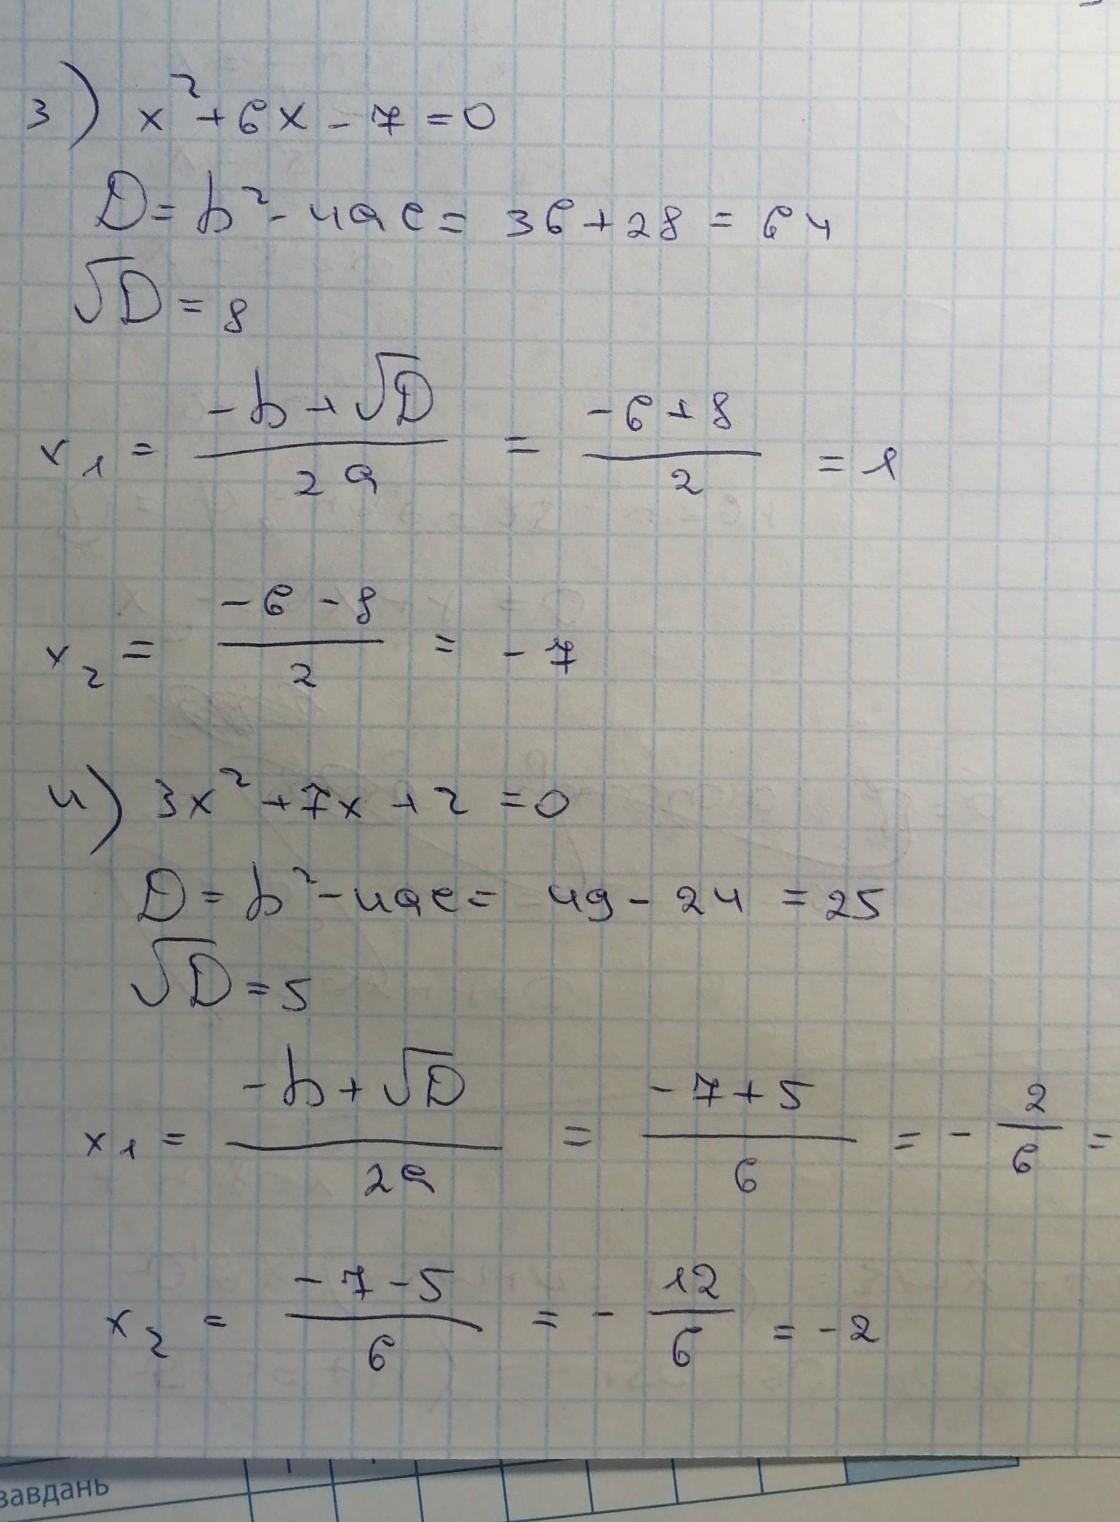 3) x² + 6x - 7 = 0
D = b² - 4ac = 36 + 28 = 64
√D = 8
x₁ = (-b + √D)/(2a) = (-6 + 8)/2 = 1
x₂ = (-6 - 8)/2 = -7
4) 3x² + 7x + 2 = 0
D = b² - 4ac = 49 - 24 = 25
√D = 5
x₁ = (-b + √D)/(2a) = (-7 + 5)/6 = -2/6 =
x₂ = (-7 - 5)/6 = -12/6 = -2
завдань